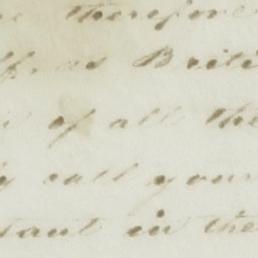 therefore
as Briti
of all the
call your
tant in the